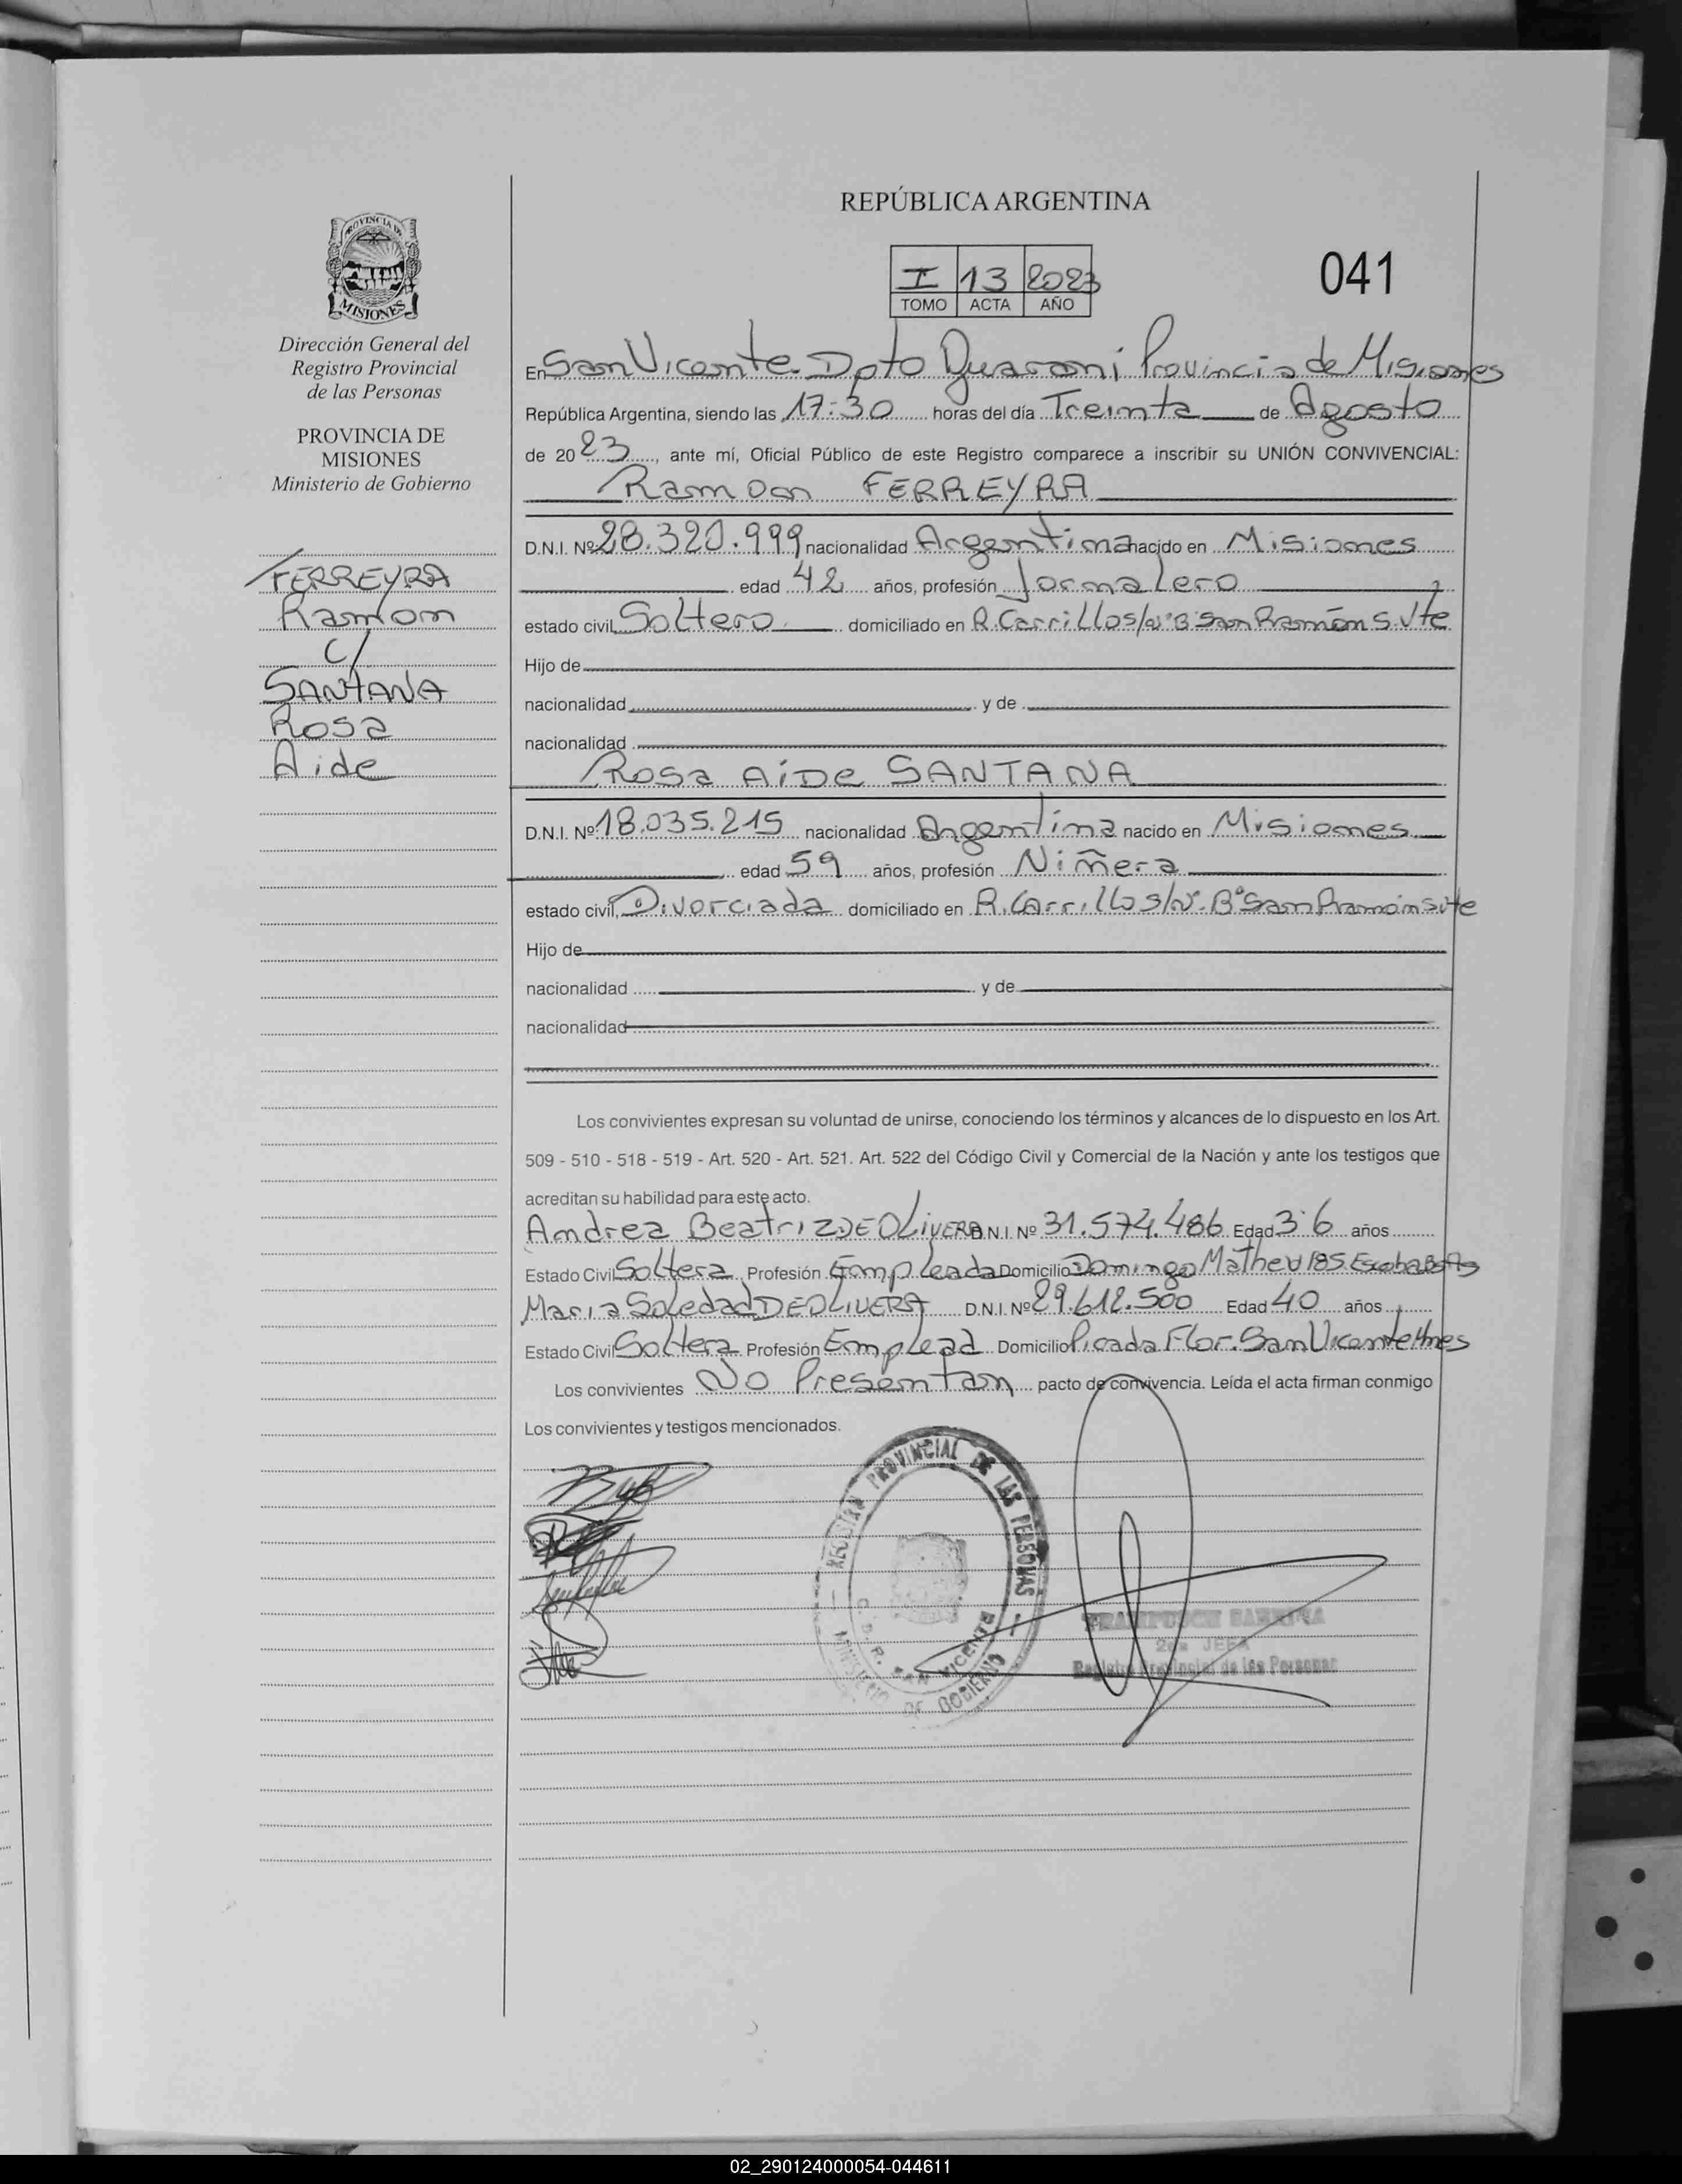 REPÚBLICA ARGENTINA
I 13 2023
TOMO ACTA AÑO
041
PROVINCIA DE
MISIONES
Dirección General del
Registro Provincial
de las Personas
PROVINCIA DE
MISIONES
Ministerio de Gobierno
FERREYRA
Ramon
c/
SANTANA
Rosa
Aide
En San Vicente Dpto Guarani Provincia de Misiones
República Argentina, siendo las 17:30 horas del día Treinta de Agosto
de 2023, ante mí, Oficial Público de este Registro comparece a inscribir su UNIÓN CONVIVENCIAL:
Ramon FERREYRA
D.N.I. Nº 28.320.999 nacionalidad Argentina nacido en Misiones
edad 42 años, profesión Jornalero
estado civil Soltero domiciliado en R. Carrillo s/nº Bº San Ramón S. Vte
Hijo de
nacionalidad y de
nacionalidad
ROSA AiDe SANTANA
D.N.I. Nº 18.035.215 nacionalidad Argentina nacido en Misiones
edad 59 años, profesión Niñera
estado civil Divorciada domiciliado en R. Carrillo s/nº. Bº San Ramón S. Vte
Hijo de
nacionalidad y de
nacionalidad
Los convivientes expresan su voluntad de unirse, conociendo los términos y alcances de lo dispuesto en los Art.
509 - 510 - 518 - 519 - Art. 520 - Art. 521. Art. 522 del Código Civil y Comercial de la Nación y ante los testigos que
acreditan su habilidad para este acto.
Andrea Beatriz DE OLiVERA D.N.I. Nº 31.574.486 Edad 36 años
Estado Civil Soltera Profesión Empleada Domicilio Domingo Matheu 185 Escobar BsAs
Maria Soledad DE OLIVERA D.N.I. Nº 29.612.500 Edad 40 años
Estado Civil Soltera Profesión Emplead Domicilio Picada Flor. San Vicente Mnes
Los convivientes No Presentan pacto de convivencia. Leída el acta firman conmigo
Los convivientes y testigos mencionados.
REGISTRO PROVINCIAL DE LAS PERSONAS
SAN VICENTE
MINISTERIO DE GOBIERNO
2da JEFA
Registro Provincial de las Personas
02_290124000054-044611